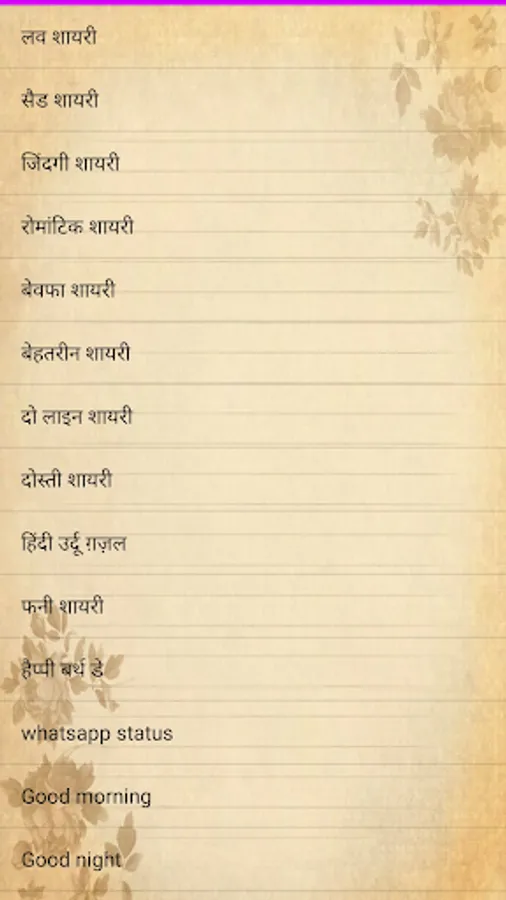 लव शायरी
सैड शायरी
जिंदगी शायरी
रोमांटिक शायरी
बेवफा शायरी
बेहतरीन शायरी
दो लाइन शायरी
दोस्ती शायरी
हिंदी उर्दू ग़ज़ल
फनी शायरी
हैप्पी बर्थ डे
whatsapp status
Good morning
Good night